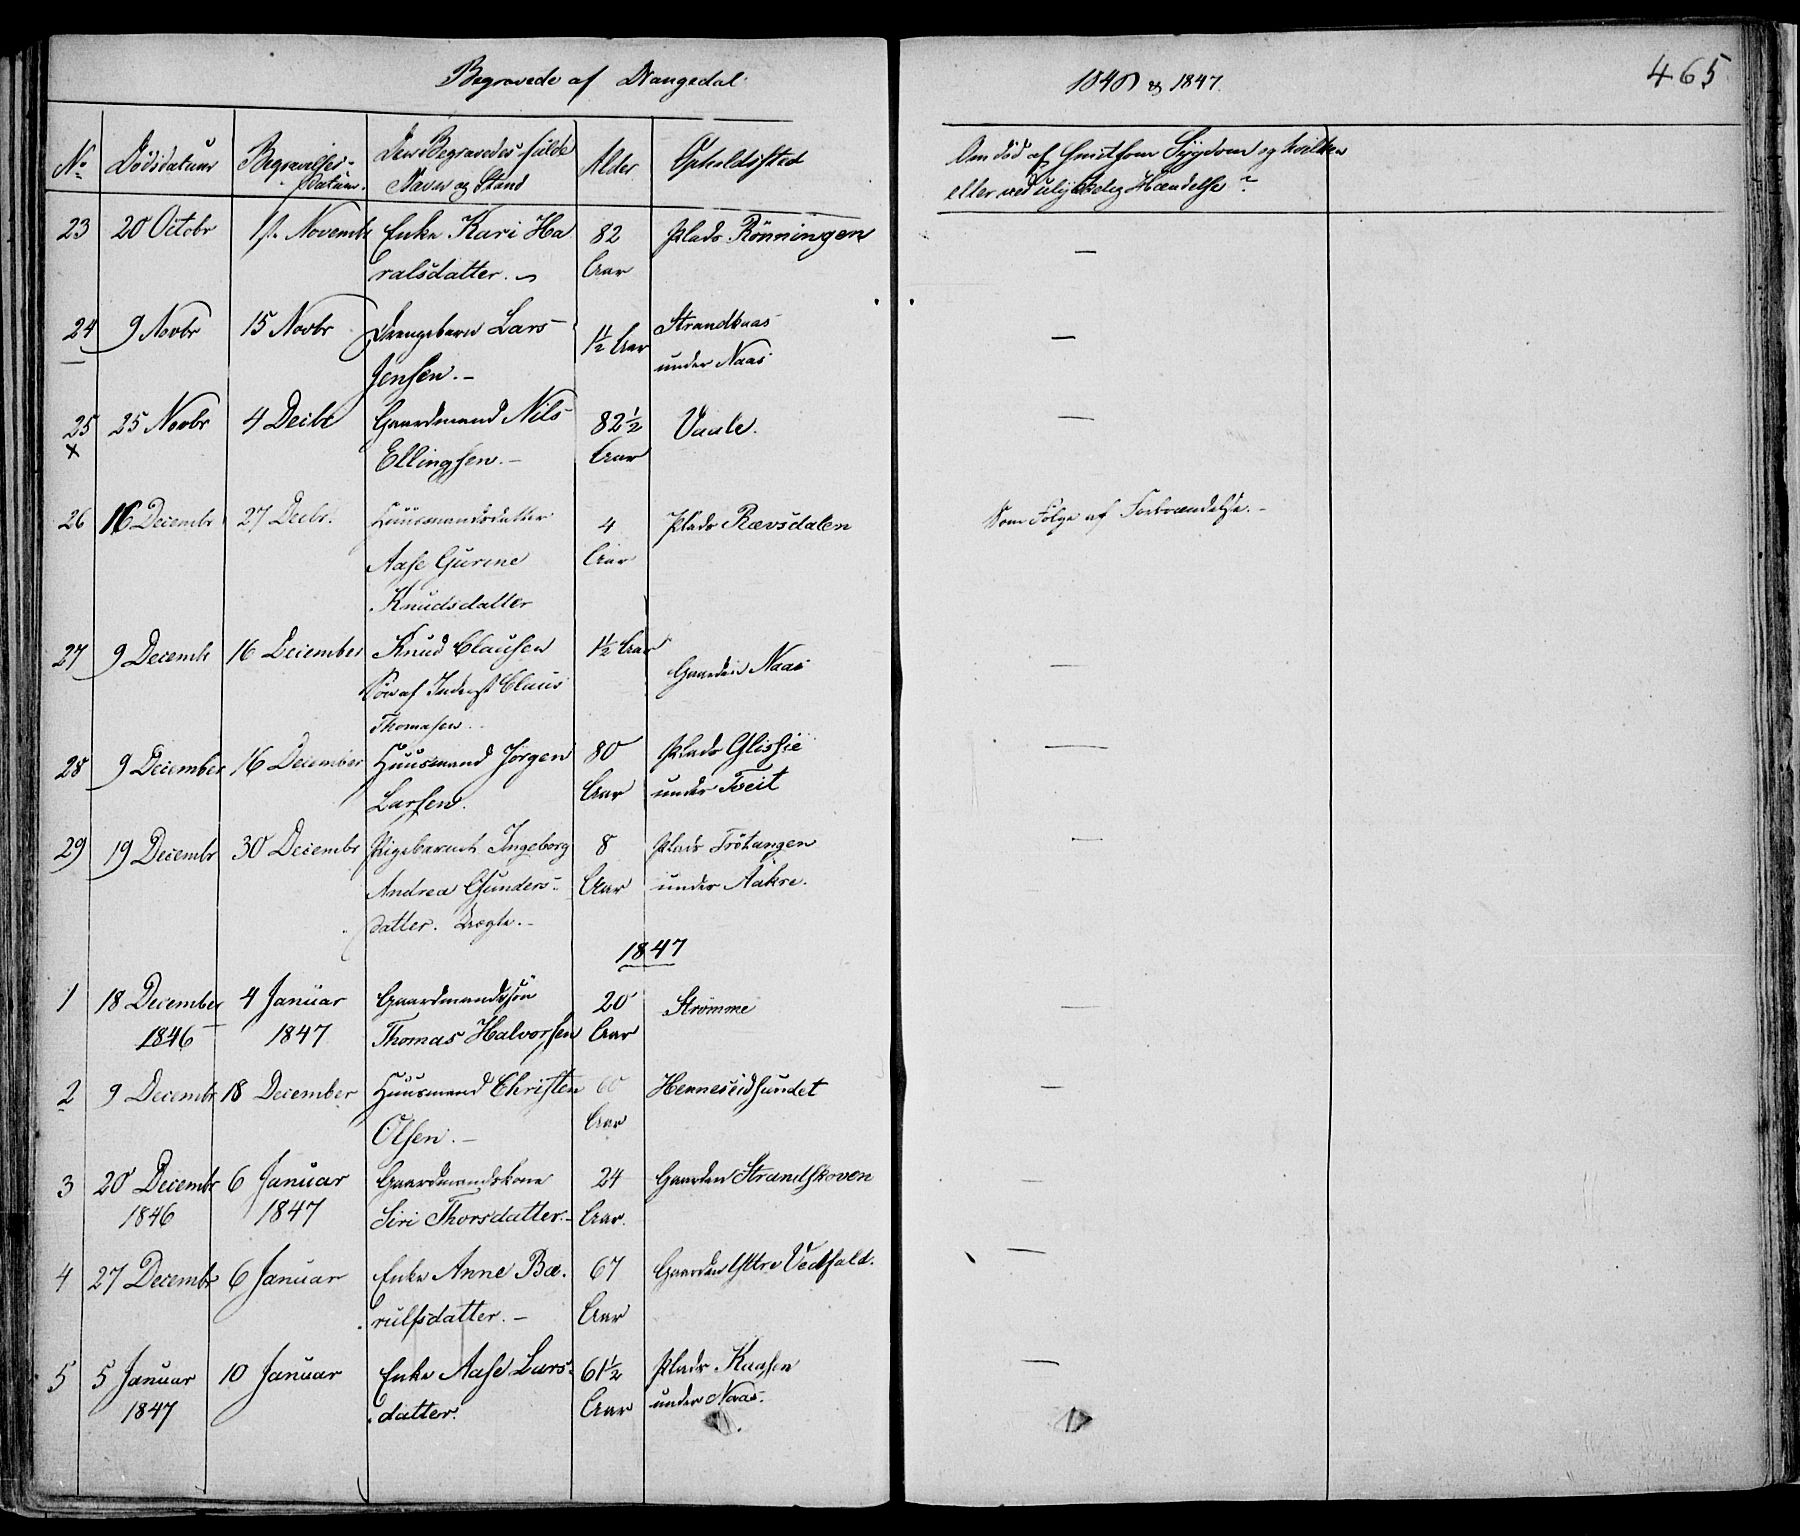 Begravede af Drangedal
1846 & 1847.
465
No
Dödsdatum
Begravelses-
Datum.
Den Begravedes fulde
Navn og Stand
Alder
Opholdssted
Om död af smitsom Sygdom og hvilken
eller ved ulykkelig Hændelse?
23 20 Octobr 1st. Novembr Enke Kari Ha 82 Plads Rönningen —
ralsdatter. Aar
24 9 Novbr 15 Novbr Drengebarn Lars 1½ Aar Strandkaas —
Jensen. — under Naas
25 25 Novbr 4 Decbr Gaardmand Nils 82½ Vaale. —
x Ellingsen. — Aar
26 16 Decembr 27 Decbr. Huusmandsdatter 4 Plads Rævsdalen Som Fölge af Forbrændelse. —
Aase Gurine Aar
Knudsdatter
27 9 Decembr 16 December Knud Clausen 1½ Aar Gaarden Naas —
Sön af Inderst Claus
Thomasen.
28 9 December 16 December Huusmand Jörgen 80 Plads Glissie —
Larsen. Aar under Tveit
29 19 Decembr 30 Decembr Pigebarnet Ingeborg 8 Plads Trötangen —
Andrea Gunders- Aar under Aakre.
datter. Uægte. —
1847
1 18 December 4 Januar Gaardmandssön 20 Strömme —
1846 1847 Thomas Halvorsen Aar
2 9 Decembr 18 December Huusmand Christen 60 Henneseidsundet —
Olsen. — Aar
3 20 Decembr 6 Januar Gaardmandskone 24 Gaarden Strandskoven —
1846 1847 Siri Thorsdatter. — Aar.
4 27 Decembr 6 Januar Enke Anne Bæ. 67 Gaarden Yttre Vedfald. —
rulfsdatter. — Aar
5 5 Januar 10 Januar Enke Aase Lars- 61½ Plads Kaasen —
1847 datter. Aar under Naas.